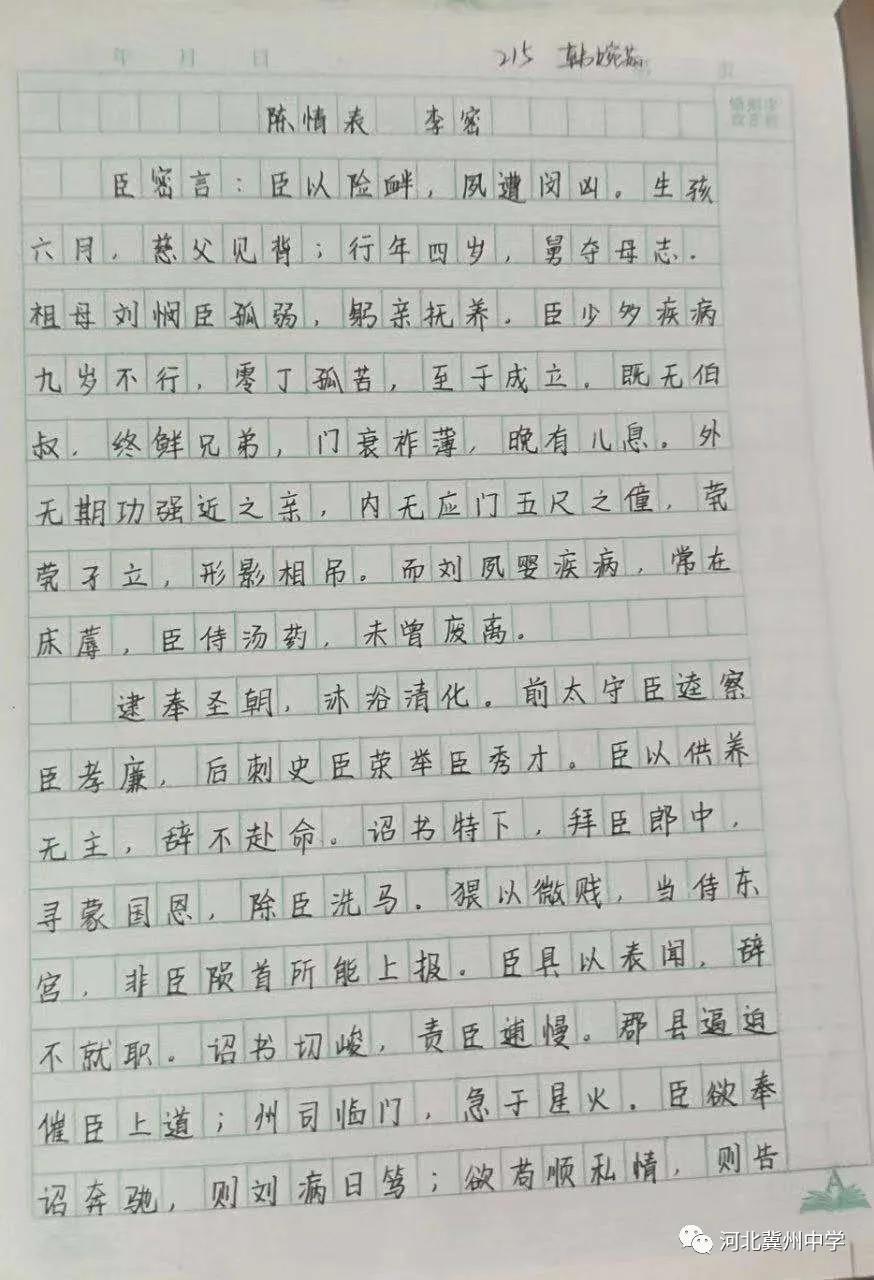 年 月 日
215 韩婉茹
陈情表 李密
臣密言：臣以险衅，夙遭闵凶。生孩
六月，慈父见背；行年四岁，舅夺母志。
祖母刘悯臣孤弱，躬亲抚养。臣少多疾病
九岁不行，零丁孤苦，至于成立。既无伯
叔，终鲜兄弟，门衰祚薄，晚有儿息。外
无期功强近之亲，内无应门五尺之僮，茕
茕孑立，形影相吊。而刘夙婴疾病，常在
床蓐，臣侍汤药，未曾废离。
逮奉圣朝，沐浴清化。前太守臣逵察
臣孝廉，后刺史臣荣举臣秀才。臣以供养
无主，辞不赴命。诏书特下，拜臣郎中，
寻蒙国恩，除臣洗马。猥以微贱，当侍东
宫，非臣陨首所能上报。臣具以表闻，辞
不就职。诏书切峻，责臣逋慢。郡县逼迫
催臣上道；州司临门，急于星火。臣欲奉
诏奔驰，则刘病日笃；欲苟顺私情，则告
河北冀州中学